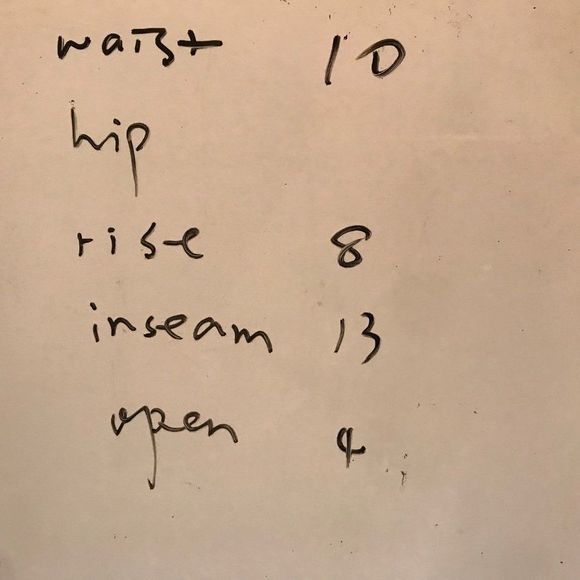 waist 10
hip
rise 8
inseam 13
open 4